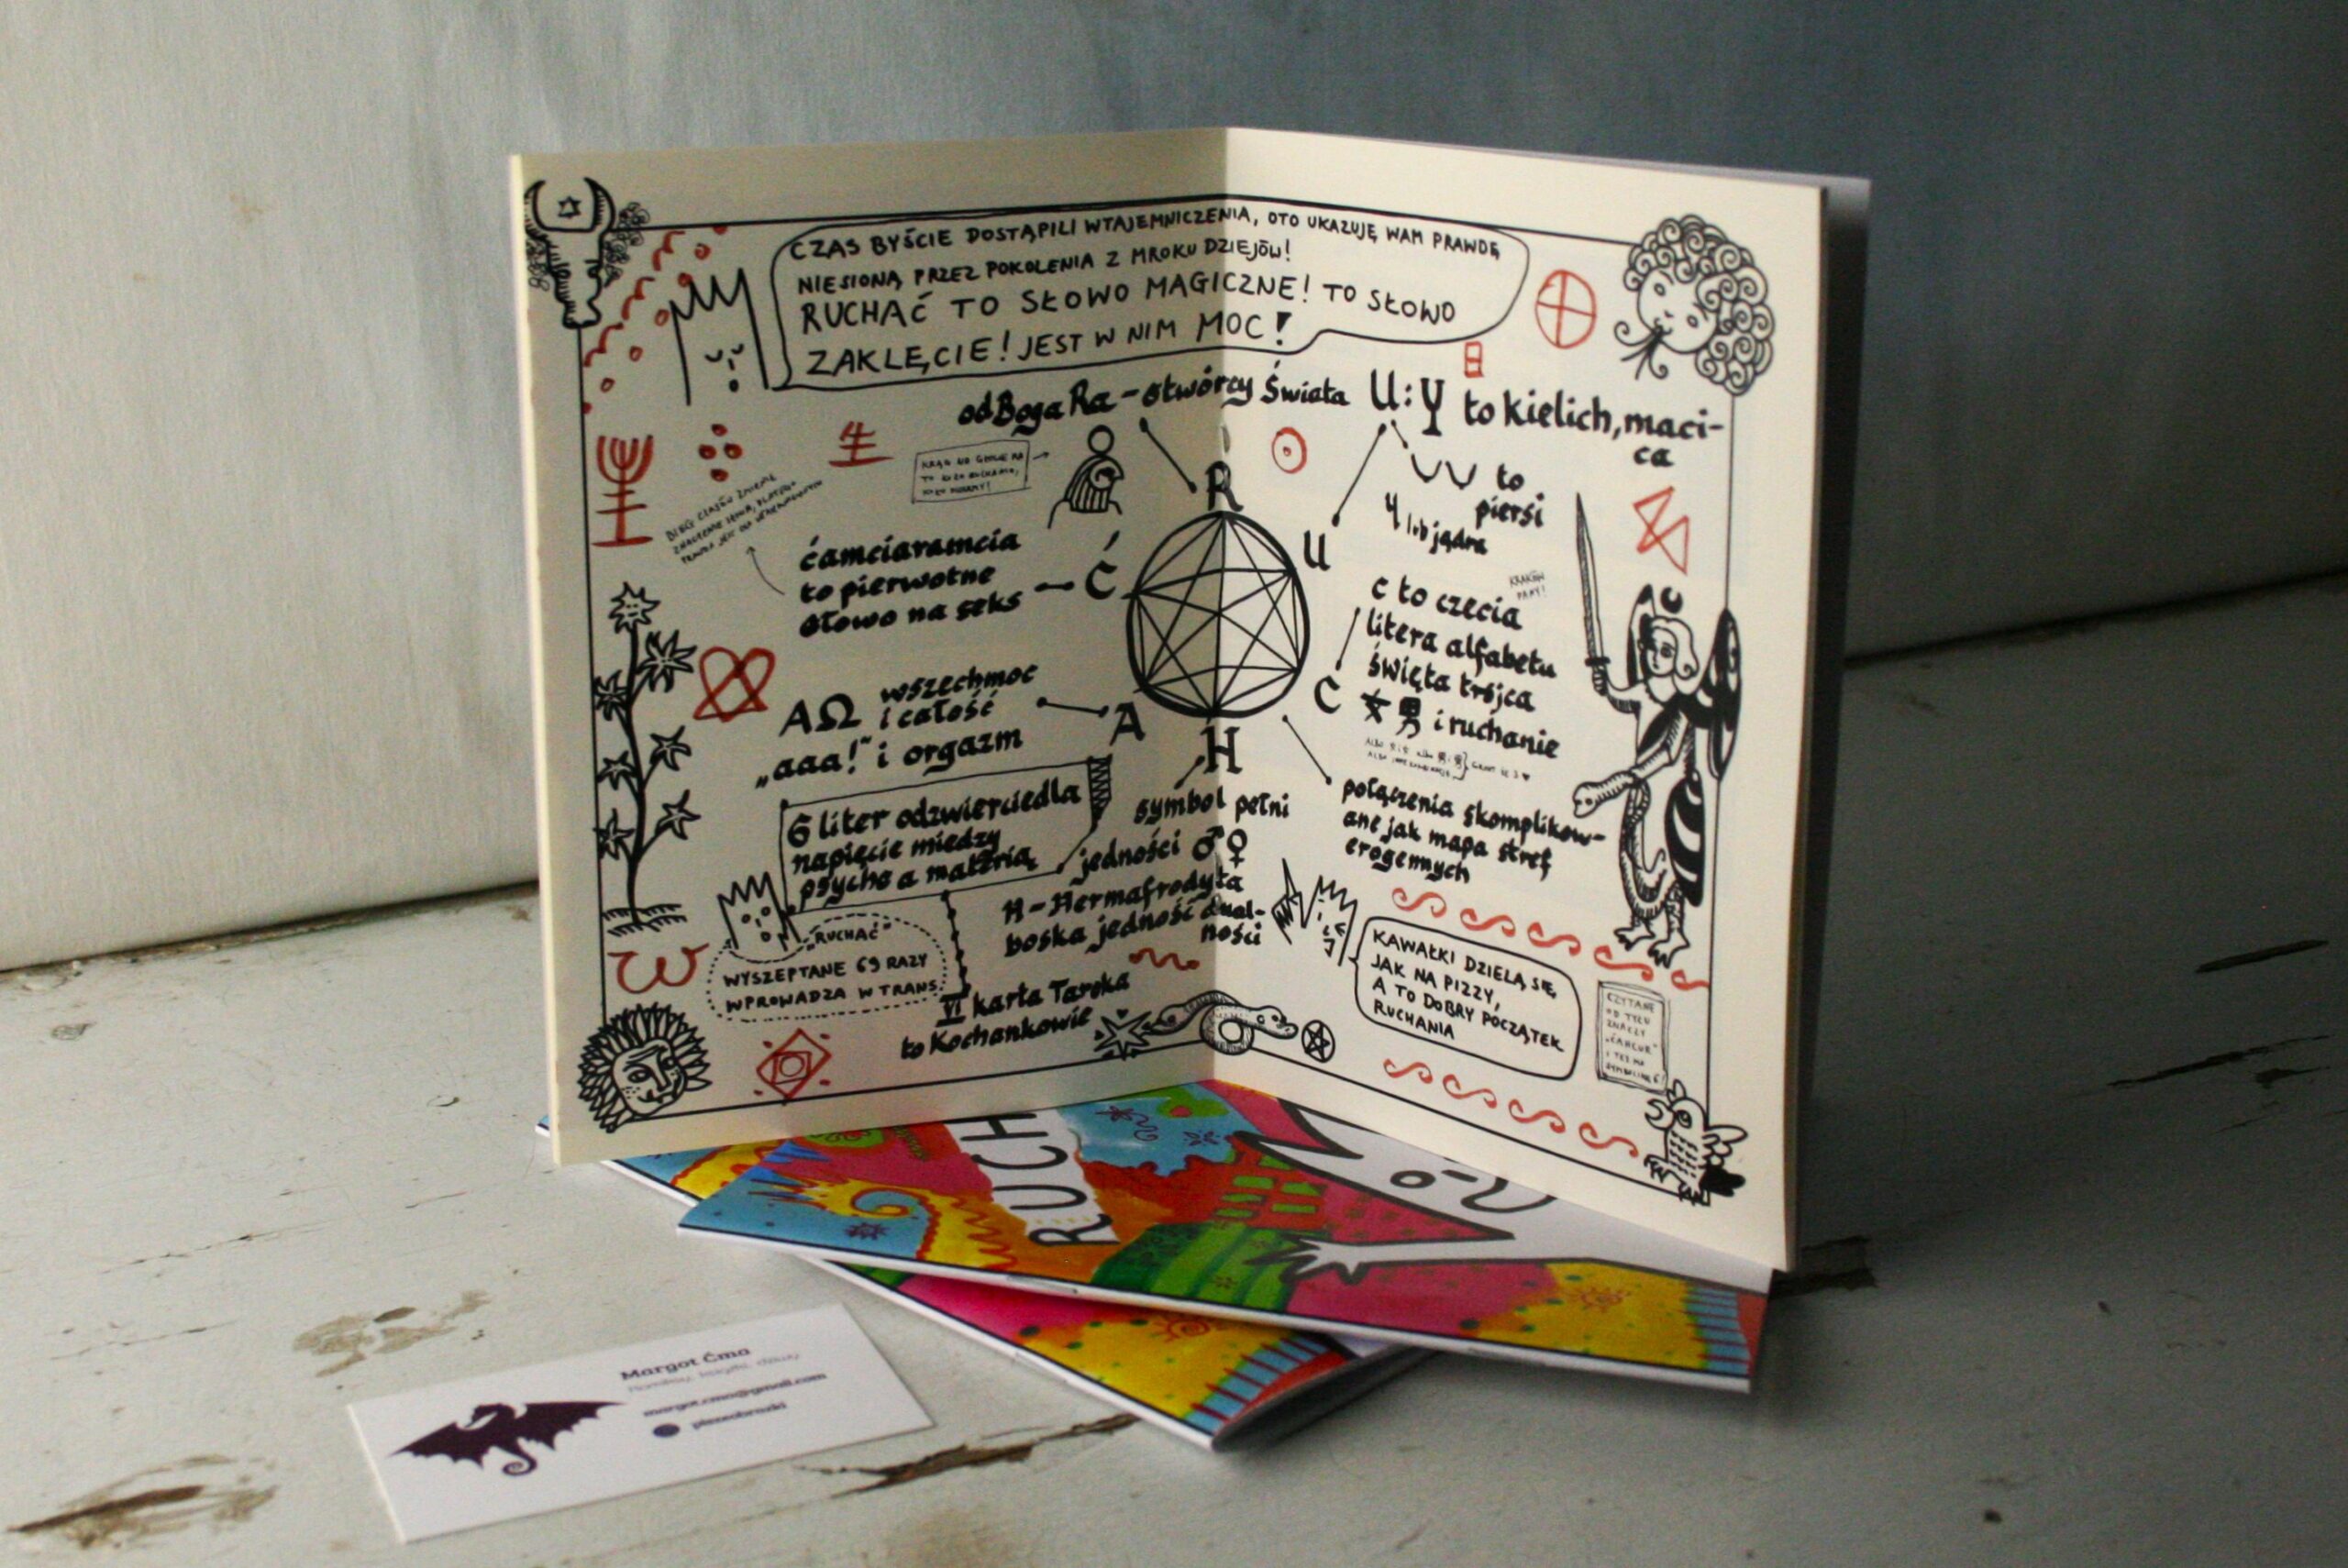 CZAS BYŚCIE DOSTĄPILI WTAJEMNICZENIA, OTO UKAZUJĘ WAM PRAWDĘ
NIESIONĄ PRZEZ POKOLENIA Z MROKU DZIEJÓW!
RUCHAĆ TO SŁOWO MAGICZNE! TO SŁOWO
ZAKLĘCIE! JEST W NIM MOC!
od Boga Ra - stwórcy Świata
U: Y to kielich, maci-
ca
to
piersi
lub jądra
生
R
U
C
H
A
Ć
ćamciaramcia
to pierwotne
słowo na seks
KRAKÓW
PANY!
C to czecia
litera alfabetu
święta trójca
女 男 i ruchanie
AΩ wszechmoc
i całość
„aaa!" i orgazm
6 liter odzwierciedla
napięcie między
psyche a materią
symbol pełni
jedności ♂♀
H - Hermafrodyta
boska jedność dual-
ności
połączenia skomplikow-
ane jak mapa stref
erogennych
„RUCHAĆ"
WYSZEPTANE 69 RAZY
WPROWADZA W TRANS.
VI karta Tarota
to Kochankowie
KAWAŁKI DZIELĄ SIĘ,
JAK NA PIZZY,
A TO DOBRY POCZĄTEK
RUCHANIA
CZYTANE
OD TYŁU
ZNACZY
„ĆAHCUR"
RUCH
Margot Ćma
margot.cma@gmail.com